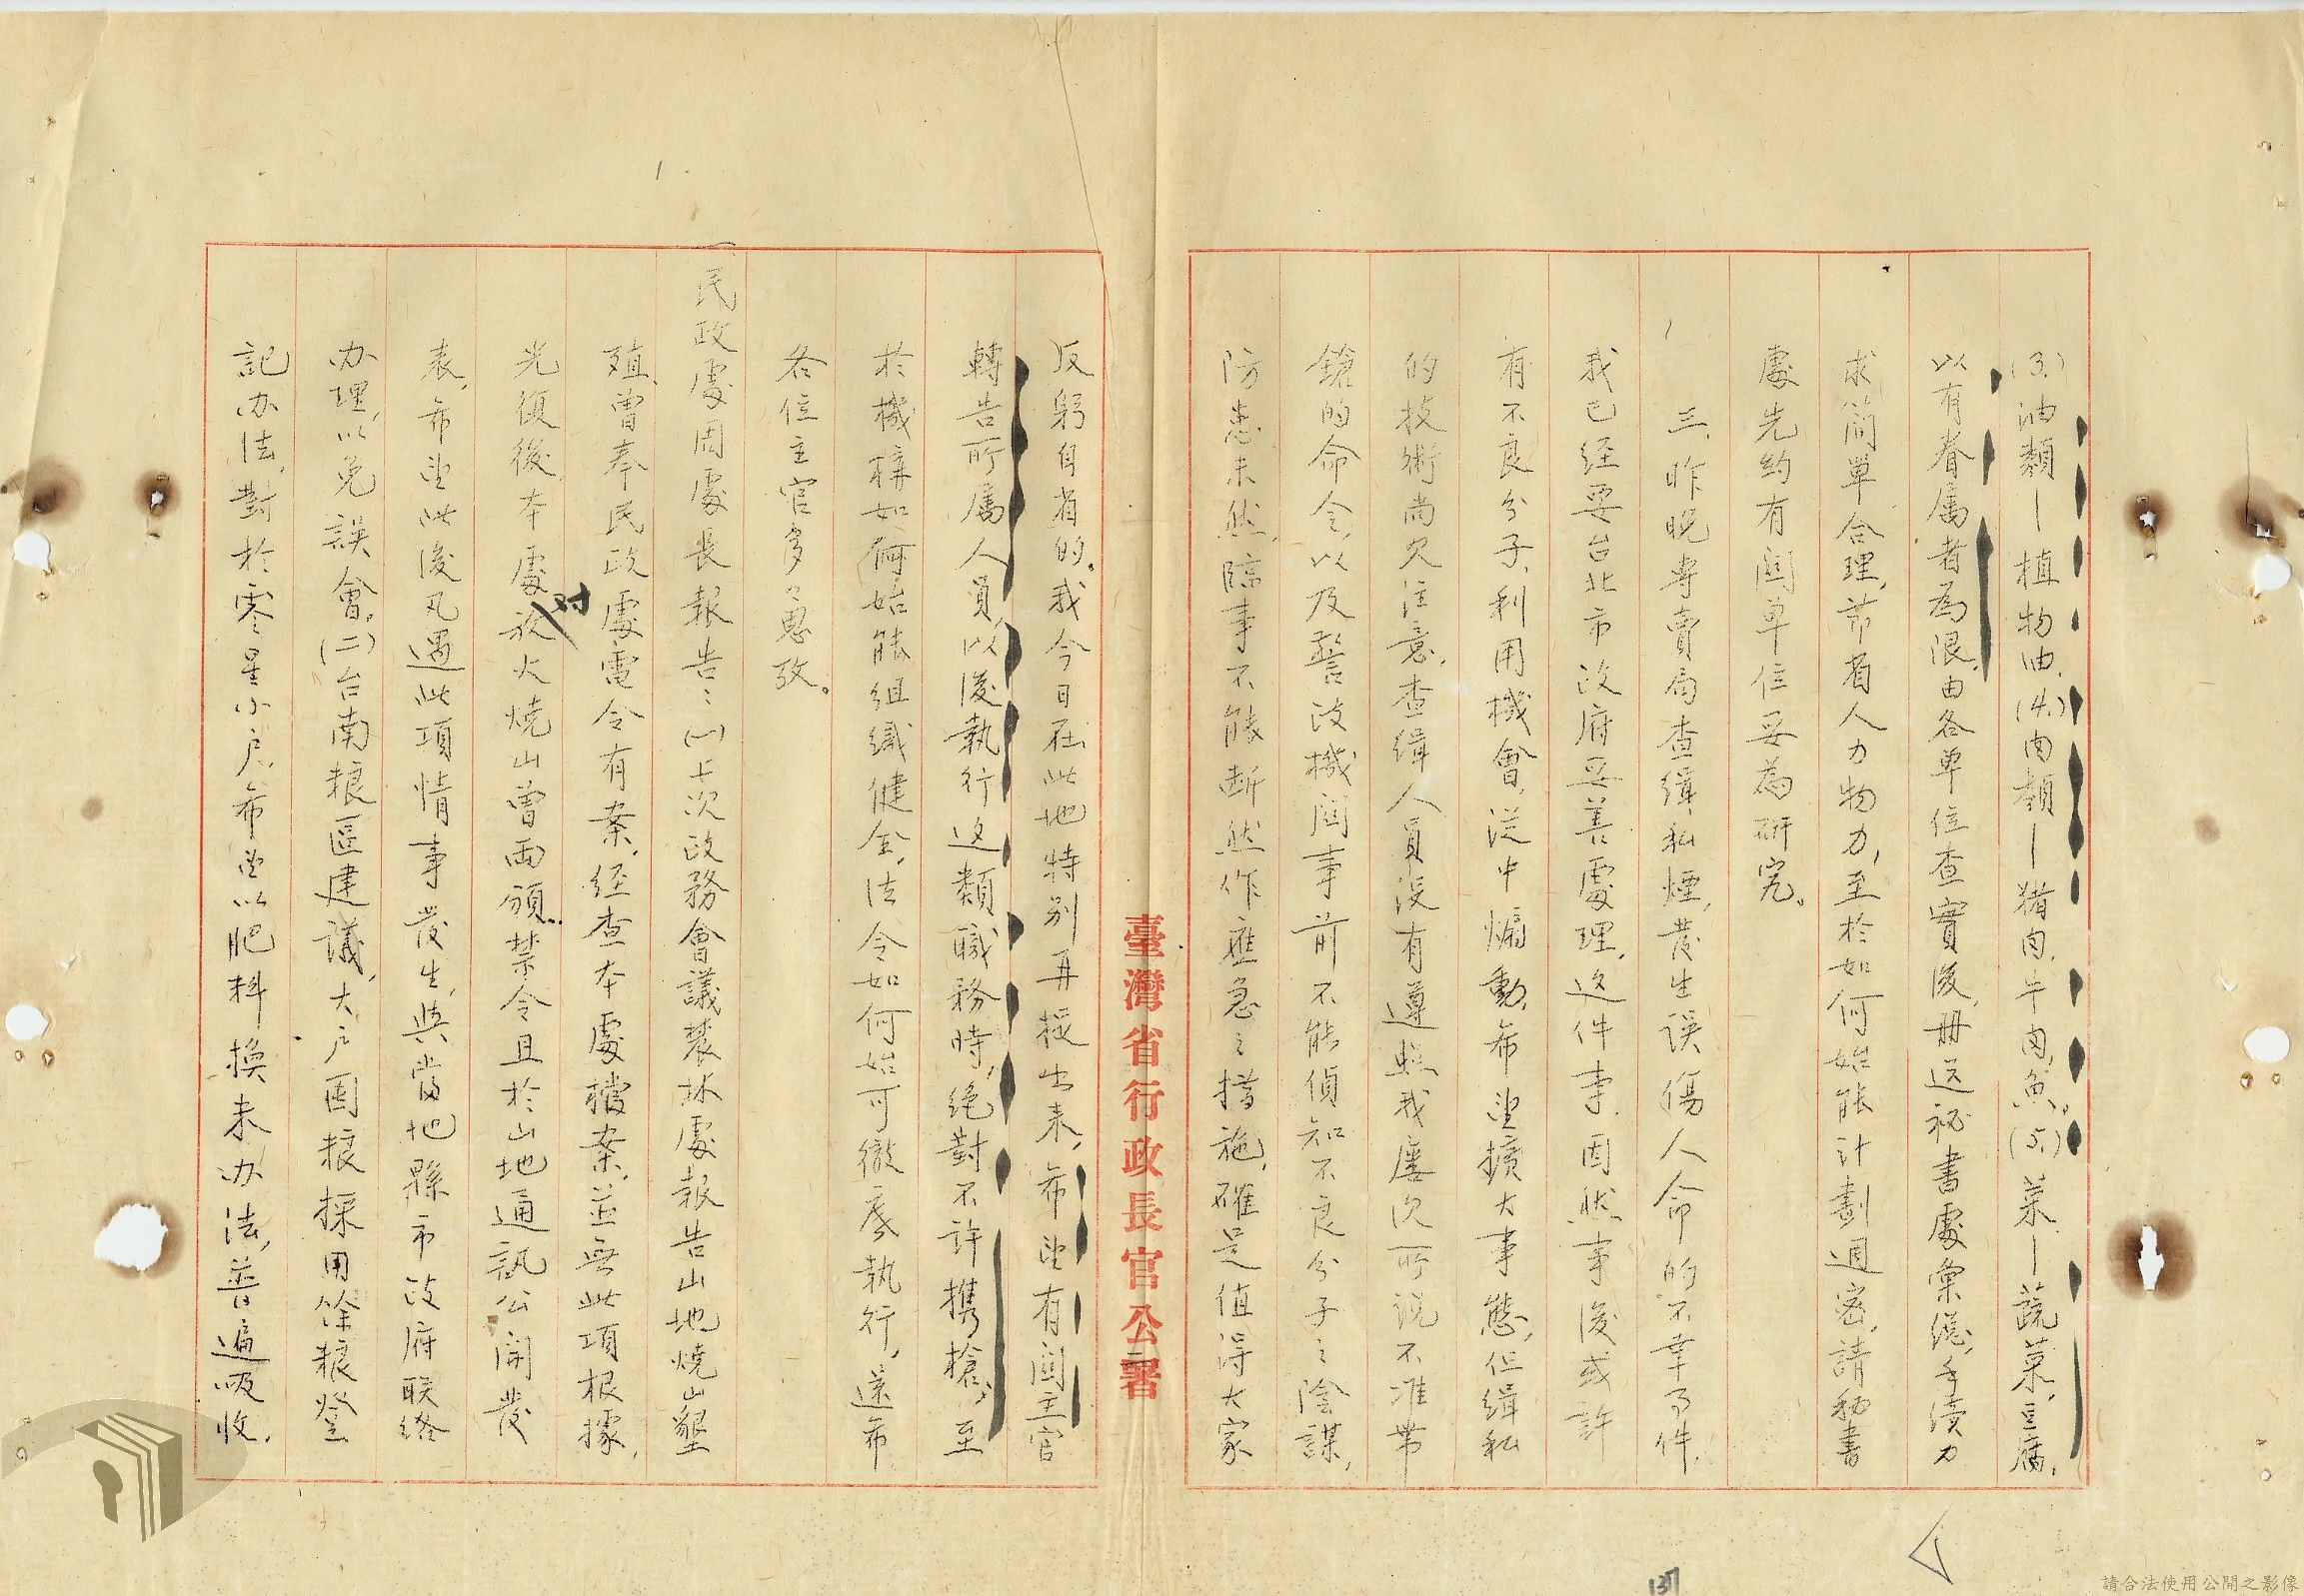 (3)油類—植物油，(4)肉類—猪肉，牛肉，魚。(5)菜—蔬菜，豆腐，
以有眷属者為限，由各單位查實後，册送祕書處彙總，手續力
求簡單合理，节省人力物力，至於如何始能計劃週密，請秘書
處先約有関單位妥為研究。
三、昨晚專賣局查缉私煙，發生误傷人命的不幸事件，
我已经要台北市政府妥善處理，这件事，固然事後或許
有不良分子，利用機會，從中煽動，希望擴大事態，但缉私
的技術尚欠注意，查缉人員没有遵照我屢次所说不准帶
鎗的命令，以及警政機関事前不能偵知不良分子之陰謀，
防患未然，臨事不能断然作應急之措施，確是值得大家
臺灣省行政長官公署
反躬自省的。我今日在此地特别再提出来，希望有関主官
轉告所属人員，以後執行这類職務時，绝對不許携槍，至
於機構如何始能组織健全，法令如何始可徹底執行，还希
各位主官多多思攷。
一民政處周處長報告：(一)上次政務會議農林處報告山地燒山墾
殖，曾奉民政處電令有案，经查本處檔案，並無此項根據，
光復後，本處对放火燒山曾兩頒禁令且於山地通訊公開發
表，希望此後凡遇此項情事發生，與當地縣市政府联络
办理，以免誤會。(二)台南粮區建議，大户囤粮採用餘粮登
記办法，對於零星小户，希望以肥料換米办法，普遍吸收，
137
請合法使用公開之影像